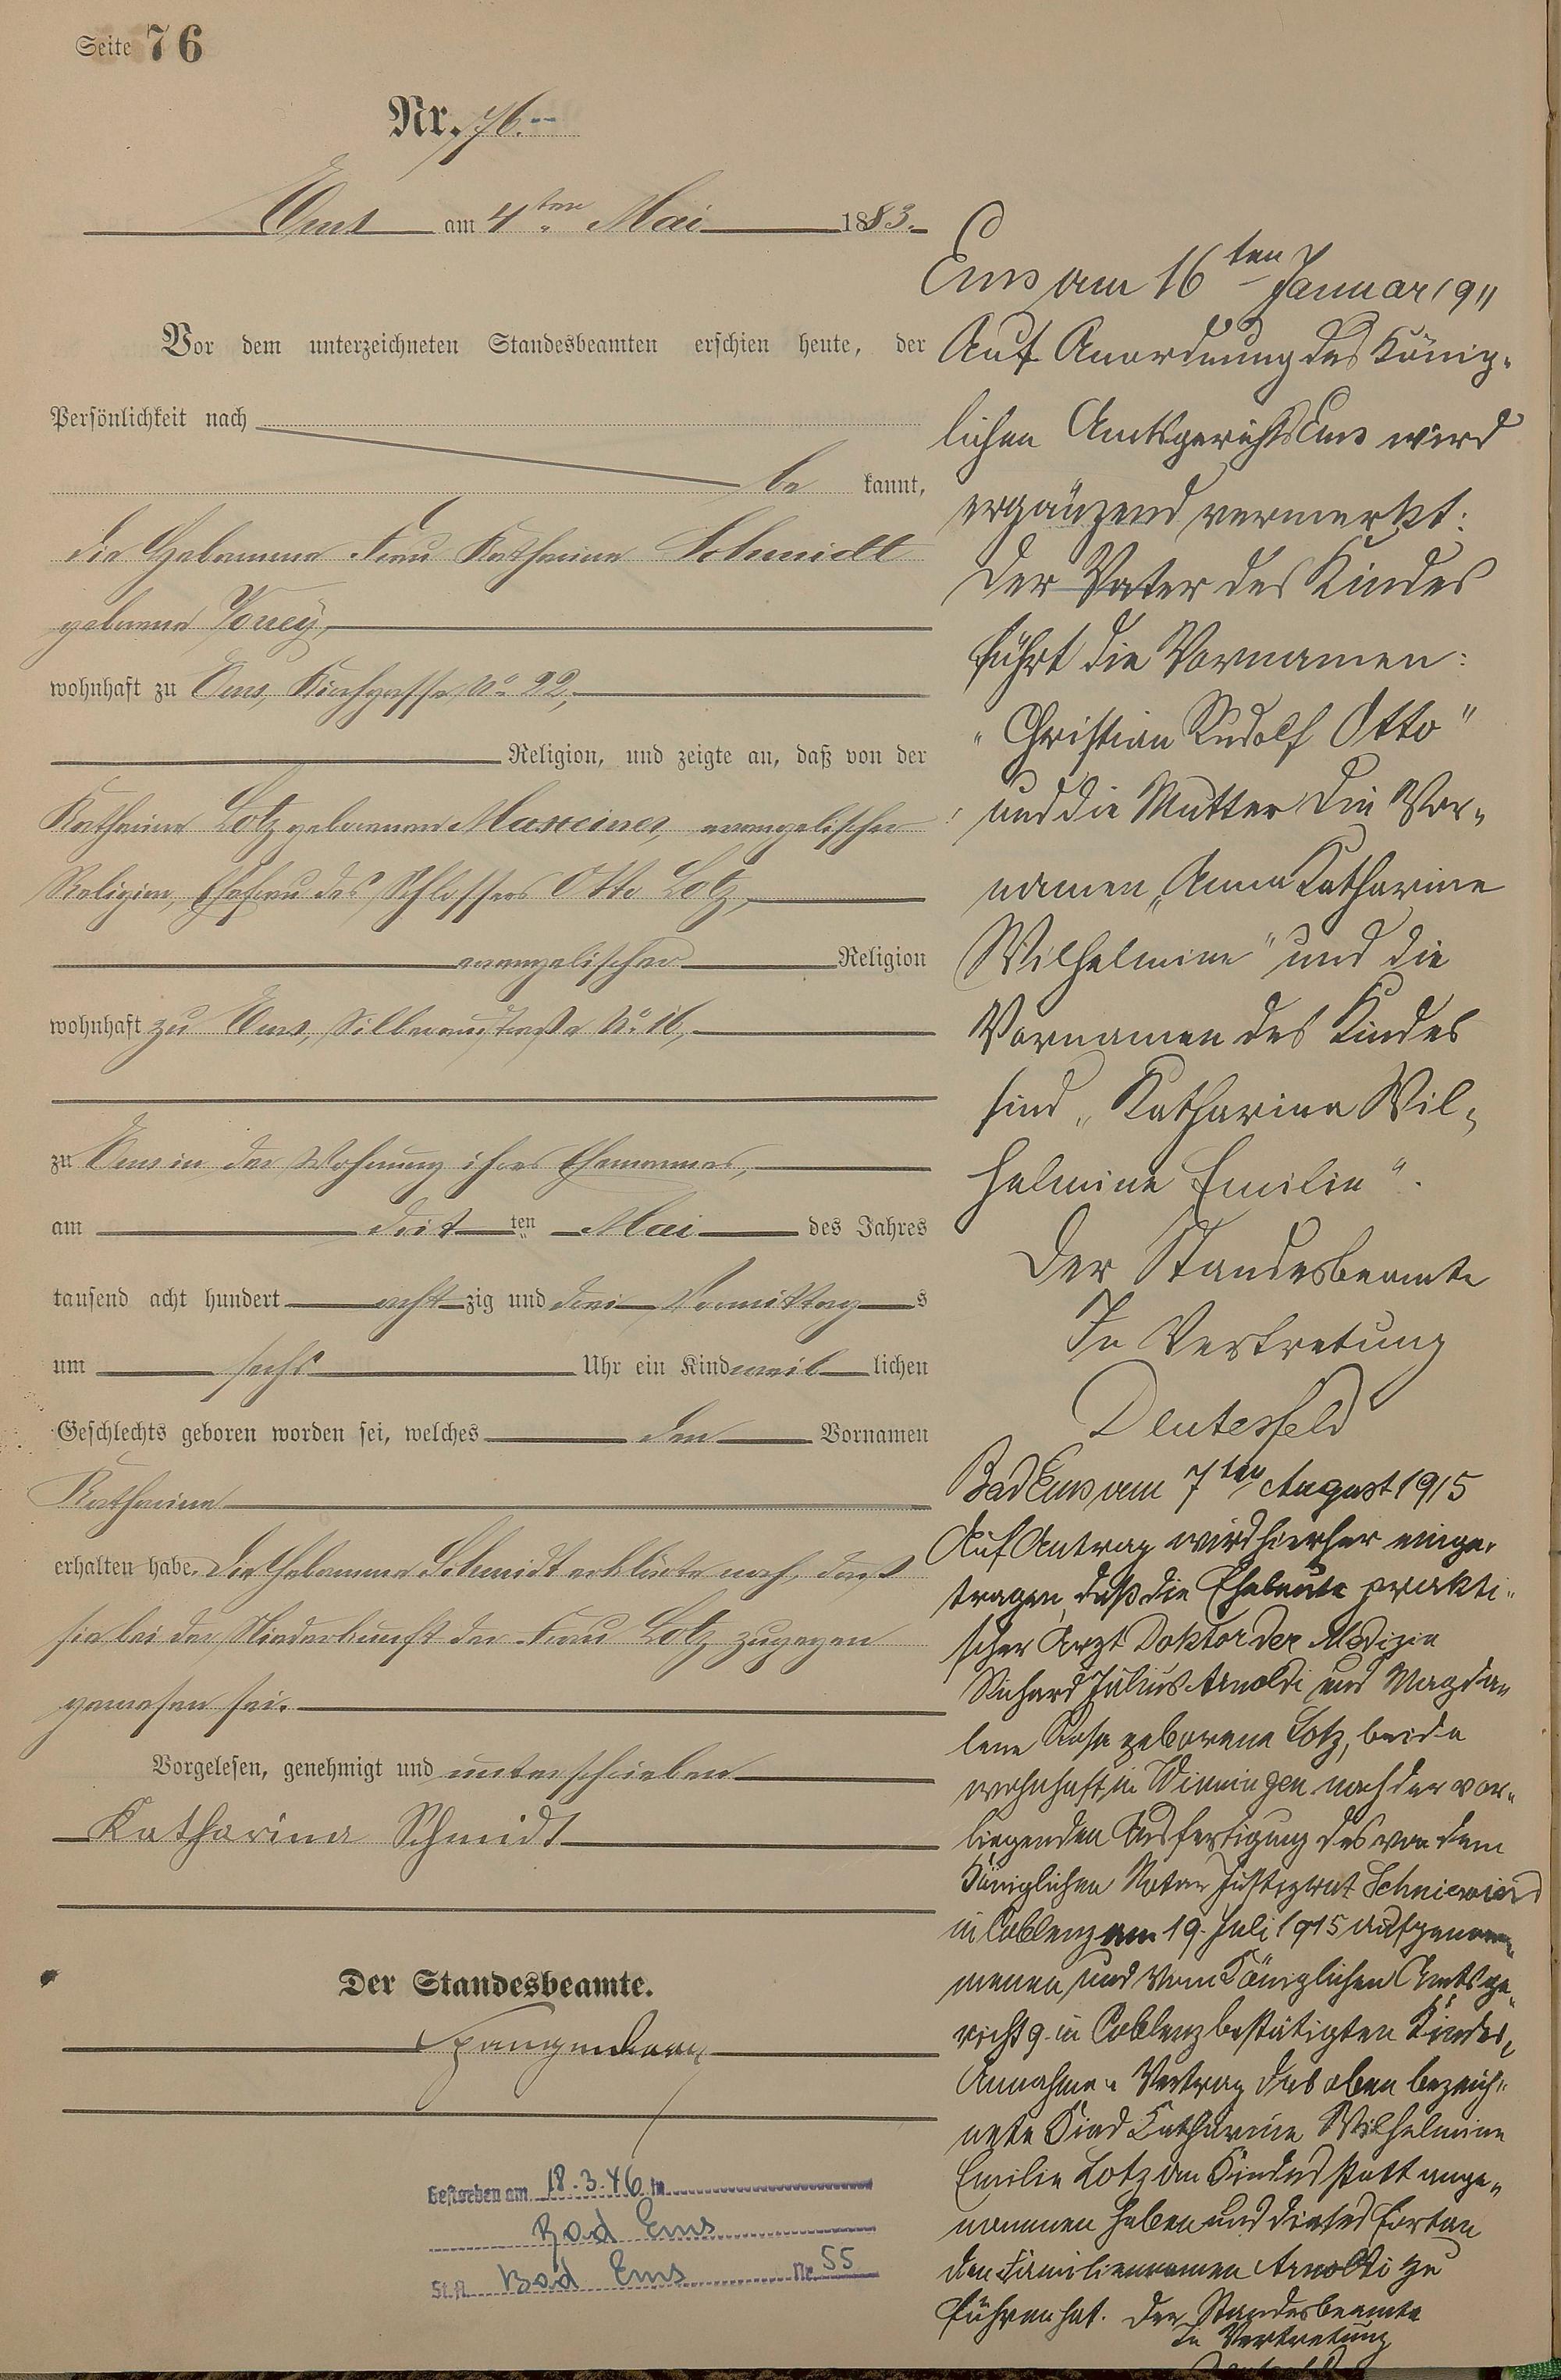 Seite 76
Nr. 76.
Ems am 4ten Mai 1883.
Vor dem unterzeichneten Standesbeamten erschien heute, der
Persönlichkeit nach
be kannt,
die Hebamme Frau Katharina Schmidt
geborene
wohnhaft zu Ems, Kirchgasse No. 22,
Religion, und zeigte an, daß von der
Katharina Lotz geborenen Maxeiner, evangelischer
Religion, Ehefrau des Schlossers Otto Lotz,
evangelischer Religion
wohnhaft zu Ems, Silberaustraße No. 16,
zu Ems in der Wohnung ihres Ehemannes,
am drit ten Mai des Jahres
tausend acht hundert acht zig und drei Vormittag s
um sechs Uhr ein Kind weib lichen
Geschlechts geboren worden sei, welches den Vornamen
Katharina
erhalten habe. Die Hebamme Schmidt erklärte noch, daß
sie bei der Niederkunft der Frau Lotz zugegen
gewesen sei.
Vorgelesen, genehmigt und unterschrieben
Katharina Schmidt
Der Standesbeamte.
Spangenberg
Gestorben am 18.3.46 in
Bad Ems
St.A. Bad Ems Nr. 55
Ems am 16ten Januar 1911
Auf Anordnung des König-
lichen Amtsgerichts Ems wird
ergänzend vermerkt:
Der Vater des Kindes
führt die Vornamen:
"Christian Rudolf Otto"
und die Mutter die Vor-
namen „Anna Katharine
Wilhelmine" und die
Vornamen des Kindes
sind „Katharina Wil-
helmine Emilie".
Der Standesbeamte
In Vertretung
Deutesfeld
Bad Ems am 7ten August 1915
Auf Antrag wird hierher einge-
tragen, daß die Eheleute prakti-
scher Arzt Doktor der Medizin
Richard Julius Arnoldi und Magda-
lene Rosa geborene Lotz, beide
wohnhaft in Winningen nach der vor-
liegenden Ausfertigung des von dem
Königlichen Notar Justizrat Schniewind
in Coblenz am 19. Juli 1915 aufgenom-
menen und vom Königlichen Amtsge-
richt 9. in Coblenz bestätigten Kindes-
Annahme-Vertrag das oben bezeich-
nete Kind Katharina Wilhelmine
Emilie Lotz an Kindesstatt ange-
nommen haben und dieses fortan
den Familiennamen Arnoldi zu
führen hat. Der Standesbeamte
In Vertretung